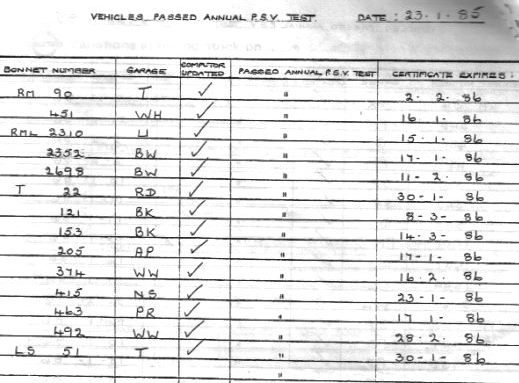 VEHICLES PASSED ANNUAL P.S.V. TEST. DATE : 23.1.85
BONNET NUMBER GARAGE COMPUTOR UPDATED PASSED ANNUAL P.S.V. TEST CERTIFICATE EXPIRES :
RM 90 T ✓ " 2. 2. 86
451 WH ✓ " 16. 1. 86
RML 2310 U ✓ " 15. 1. 86
2352 BW ✓ " 17. 1. 86
2698 BW ✓ " 11 - 2. 86
T 22 RD ✓ " 30 - 1 - 86
121 BK ✓ " 8 - 3 - 86
153 BK ✓ " 14. 3 - 86
205 AP ✓ " 17 - 1 - 86
374 WW ✓ " 16. 2. 86
415 NS ✓ " 23 - 1 - 86
463 PR ✓ " 17 1 - 86
492 WW ✓ " 28. 2. 86
LS 51 T ✓ " 30 - 1 - 86
"